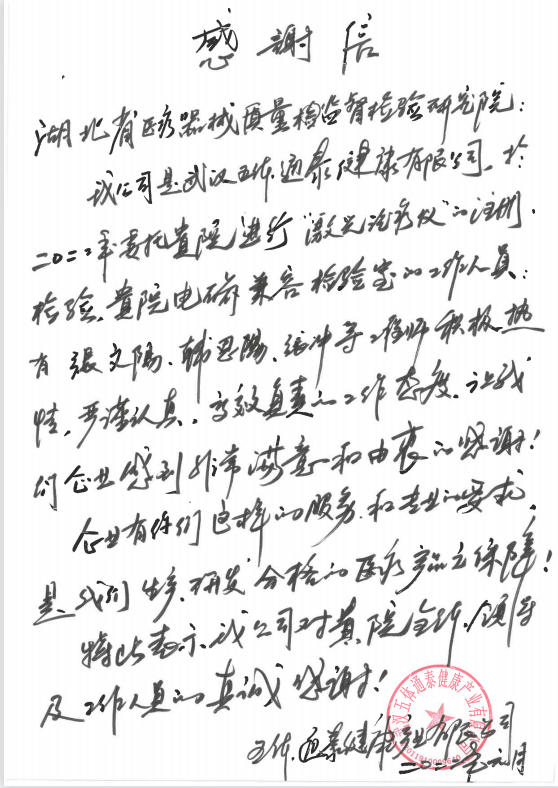 感谢信
湖北省医疗器械质量检监督检验研究院：
我公司是武汉五体通泰健康有限公司。于
二0二二年委托贵院进行“激光治疗仪”的注册
检验。贵院电磁兼容检验室的工作人员：
有张文阳、韩思阳、张冲等工程师积极、热
情，严谨认真，高效负责的工作态度，让我
们企业感到非常满意和由衷的感谢！
企业有你们这样的服务和专业的要求，
是我们生产、研发合格的医疗产品之保障！
特此表示，我公司对贵院全体、领导
及工作人员的真诚感谢！
五体通泰健康产业有限公司
二0二二年元月
武汉五体通泰健康产业有限公司